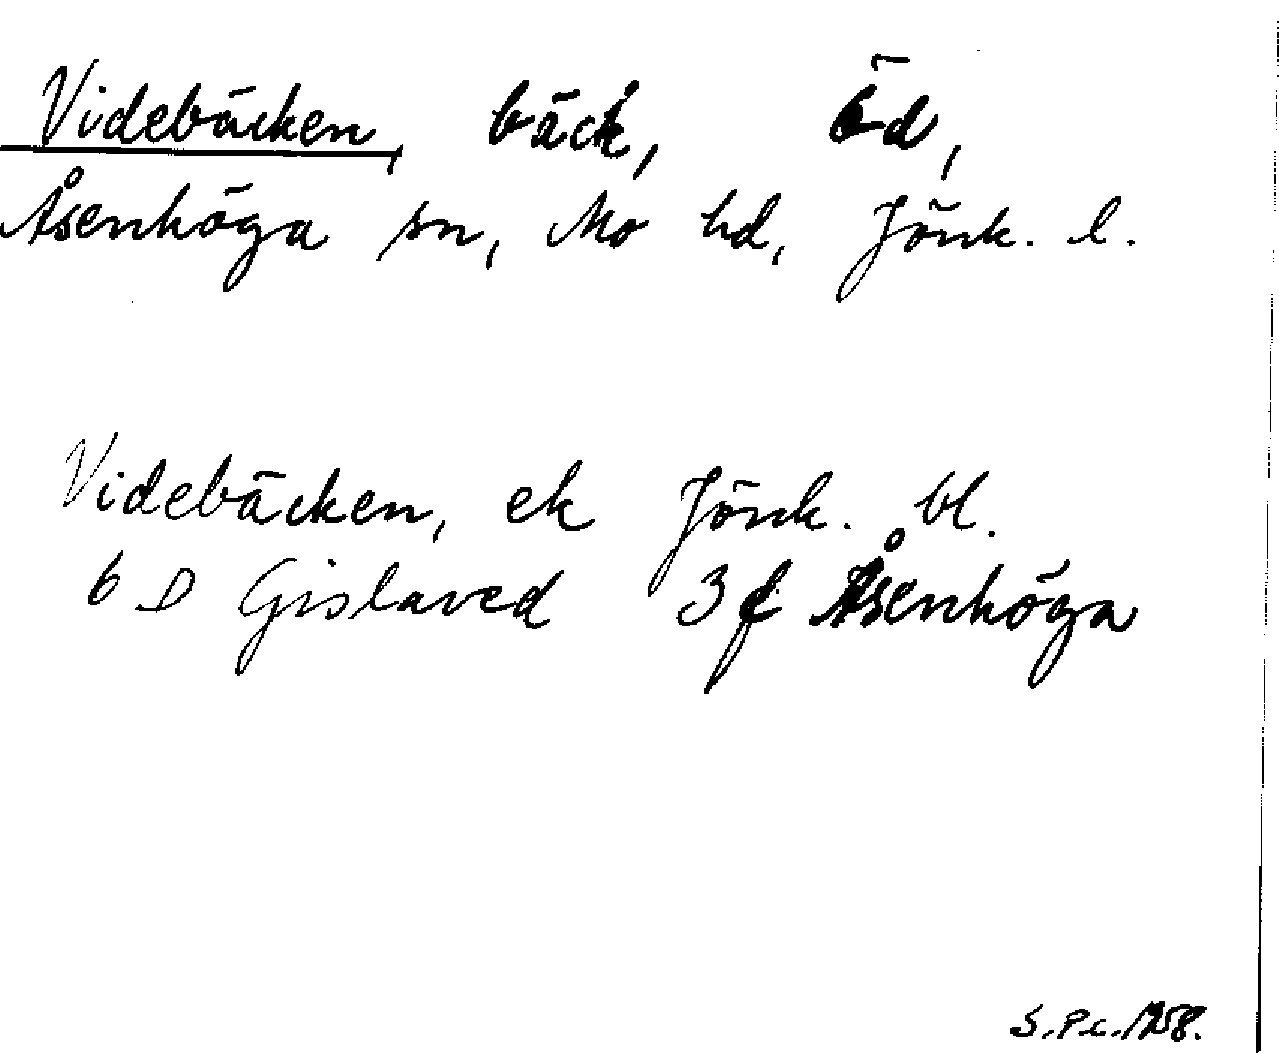 Videbäcken, bäck, öd,
Åsenhöga sn, Mo hd, Jönk. l.
Videbäcken, ek Jönk. bl.
6 D Gislaved 3 f Åsenhöga
S. Pc. 1958.